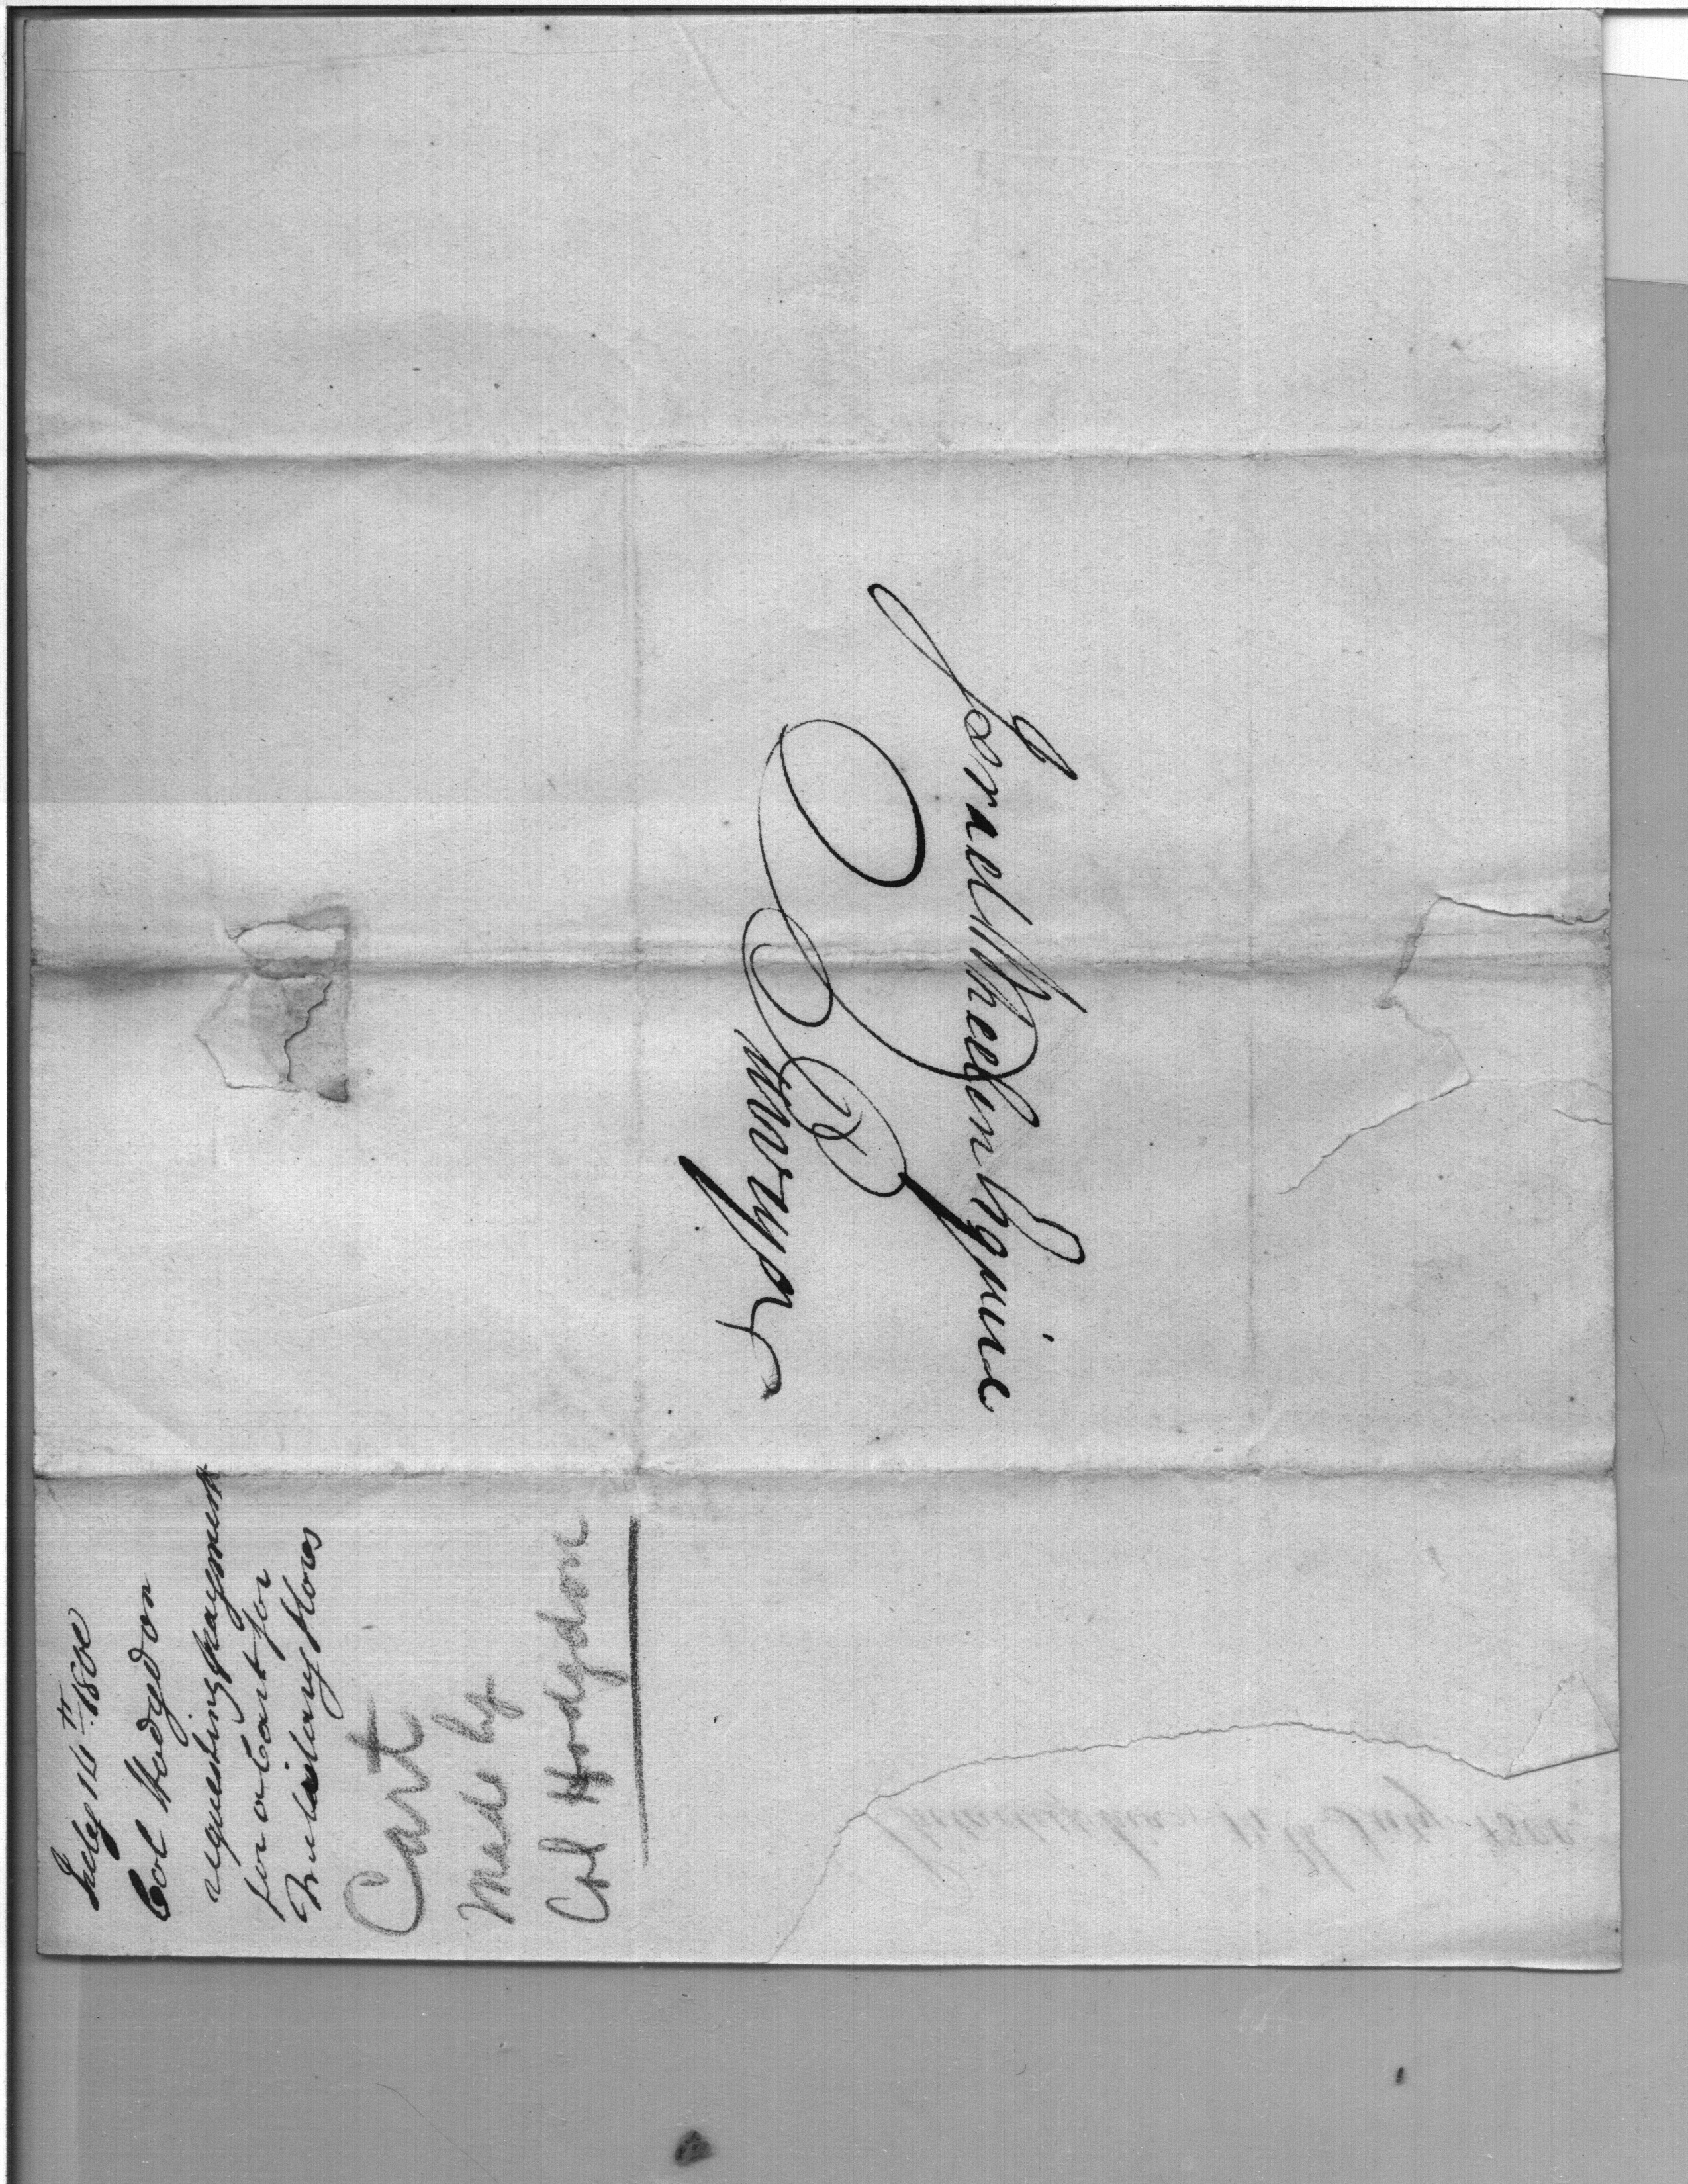 Israel Whelen Esquire
Purveyor
July 16th 1800
Col Hodgdon
requesting payment
for a Cart for
Military Stores
Cart
Made by
Col Hodgdon